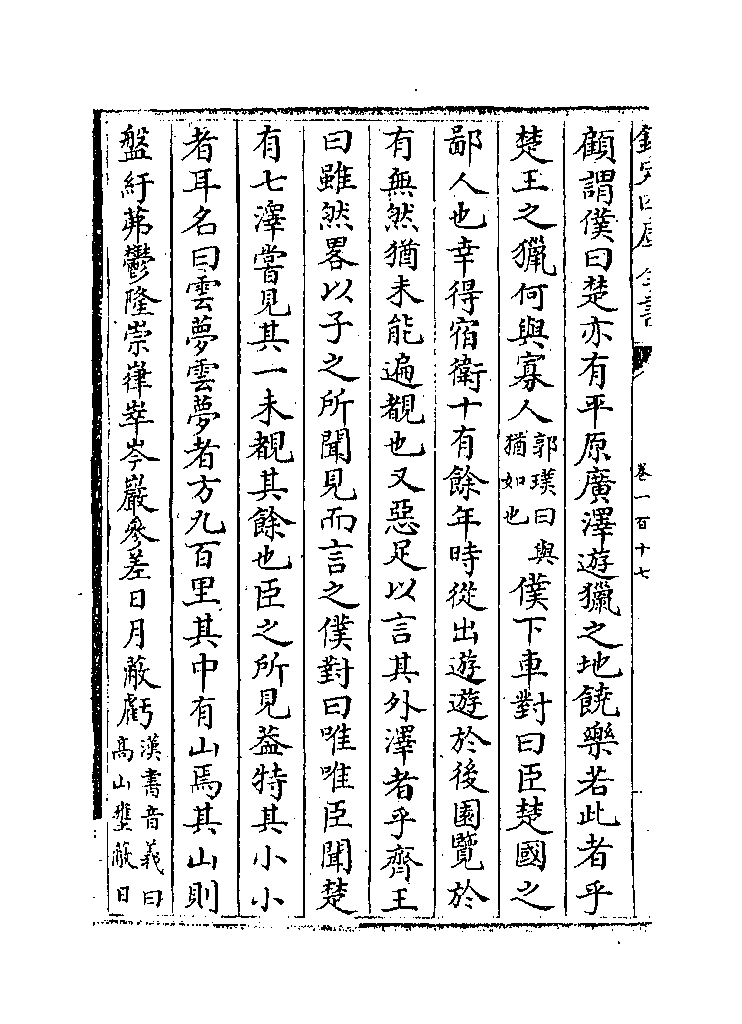 欽定四庫全書
卷一百十七
顧謂僕曰楚亦有平原廣澤遊獵之地饒樂若此者乎
楚王之獵何與寡人郭璞曰與猶如也僕下車對曰臣楚國之
鄙人也幸得宿衛十有餘年時從出遊遊於後園覽於
有無然猶未能遍覩也又惡足以言其外澤者乎齊王
曰雖然畧以子之所聞見而言之僕對曰唯唯臣聞楚
有七澤嘗見其一未覩其餘也臣之所見葢特其小小
者耳名曰雲夢雲夢者方九百里其中有山焉其山則
盤紆茀鬱隆崇嵂崒岑巖參差日月蔽虧漢書音義曰高山壅蔽日